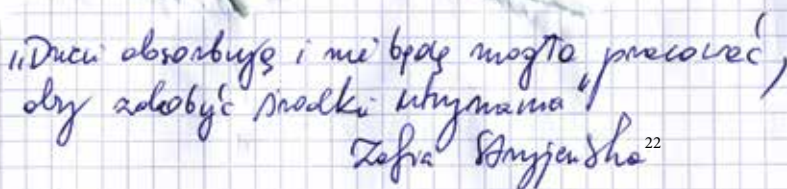 „Dzieci absorbują i nie będę mogła pracować,
aby zdobyć środki utrzymania"
Zofia Stryjeńska²²